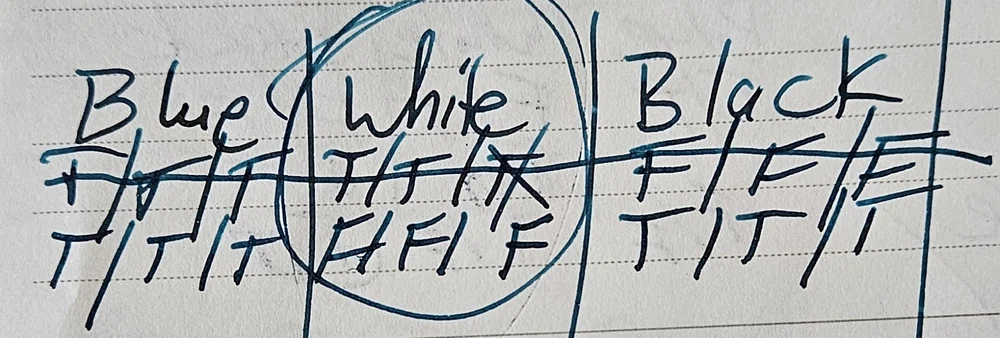 Blue White Black
T/T/T T/F/ F/F/F
T/T/T F/F/F T/T/